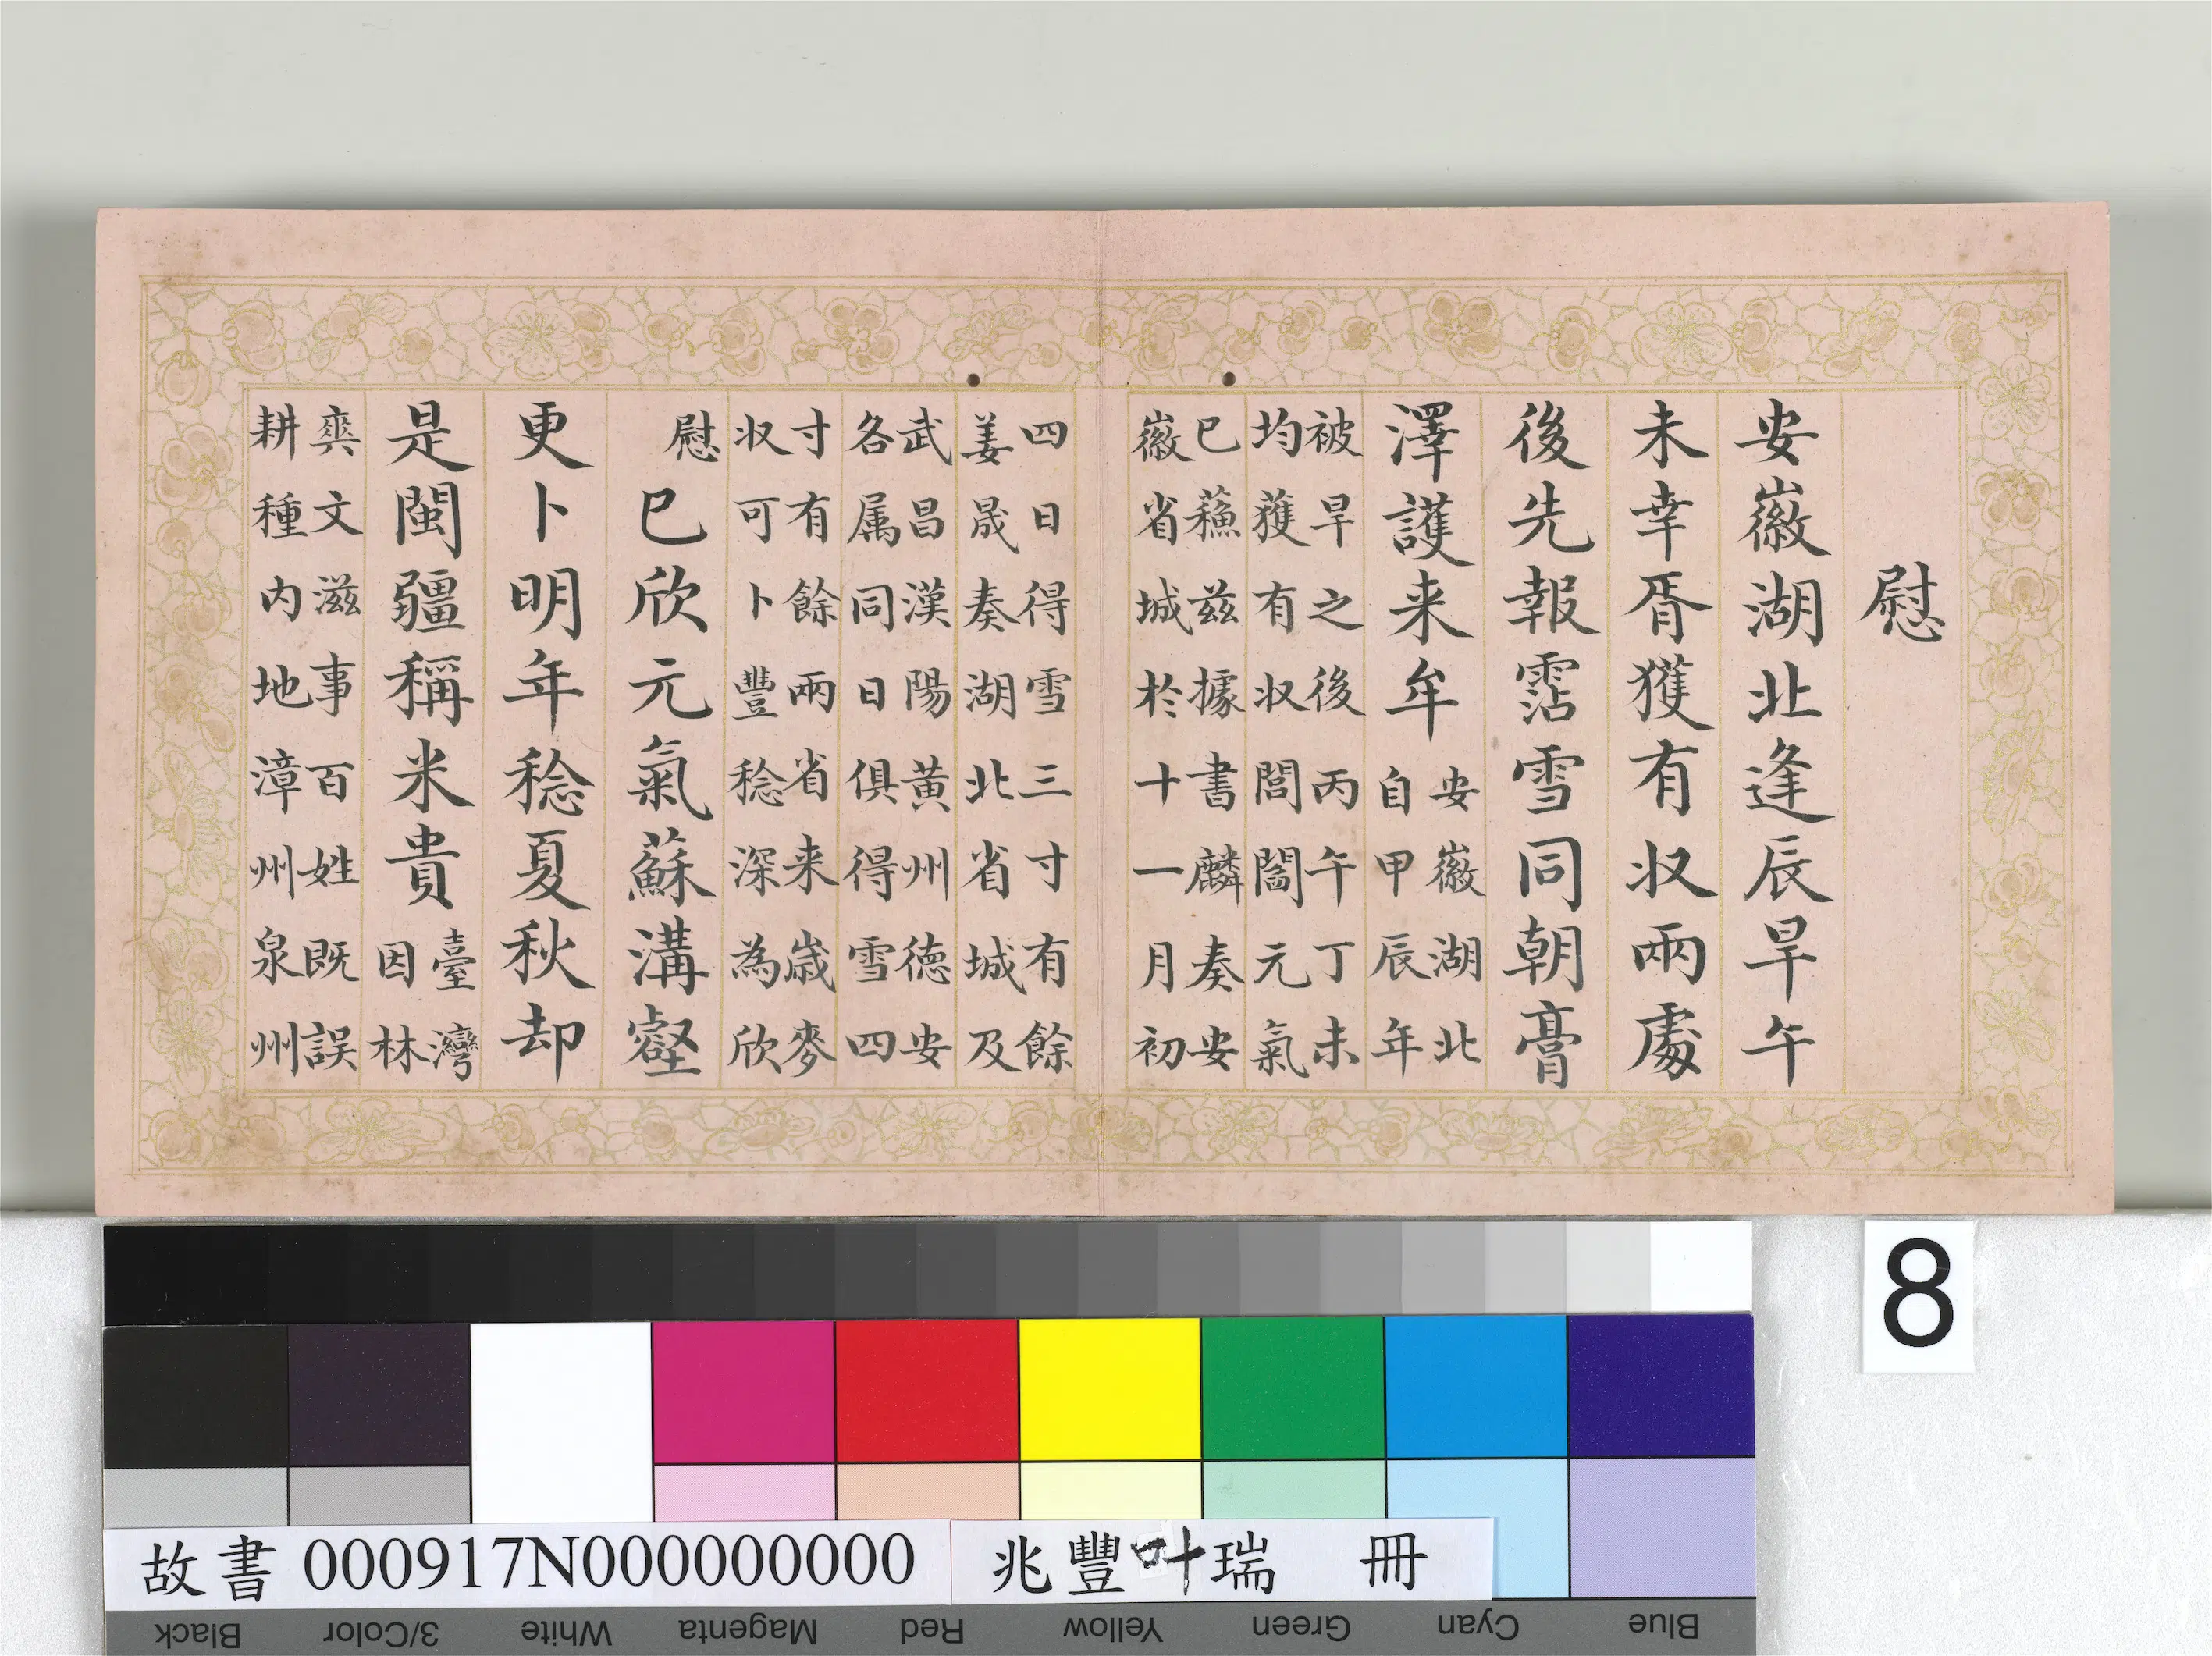 慰
安徽湖北逢辰旱午
未幸胥獲有収兩處
後先報霑雪同朝膏
澤護来牟
安徽湖北
自甲辰年
被旱之後丙午丁未
均獲有収閭閻元氣
已蘓兹據書麟奏安
徽省城於十一月初
四日得雪三寸有餘
姜晟奏湖北省城及
武昌漢陽黄州德安
各属同日俱得雪四
寸有餘兩省来歲麥
収可卜豐稔深為欣
慰
已欣元氣蘇溝壑
更卜明年稔夏秋却
是閩疆稱米貴
臺灣
因林
爽文滋事百姓既誤
耕種内地漳州泉州
8
故書 000917N000000000 兆豐叶瑞 冊
Black 3/Color White Magenta Red Yellow Green Cyan Blue